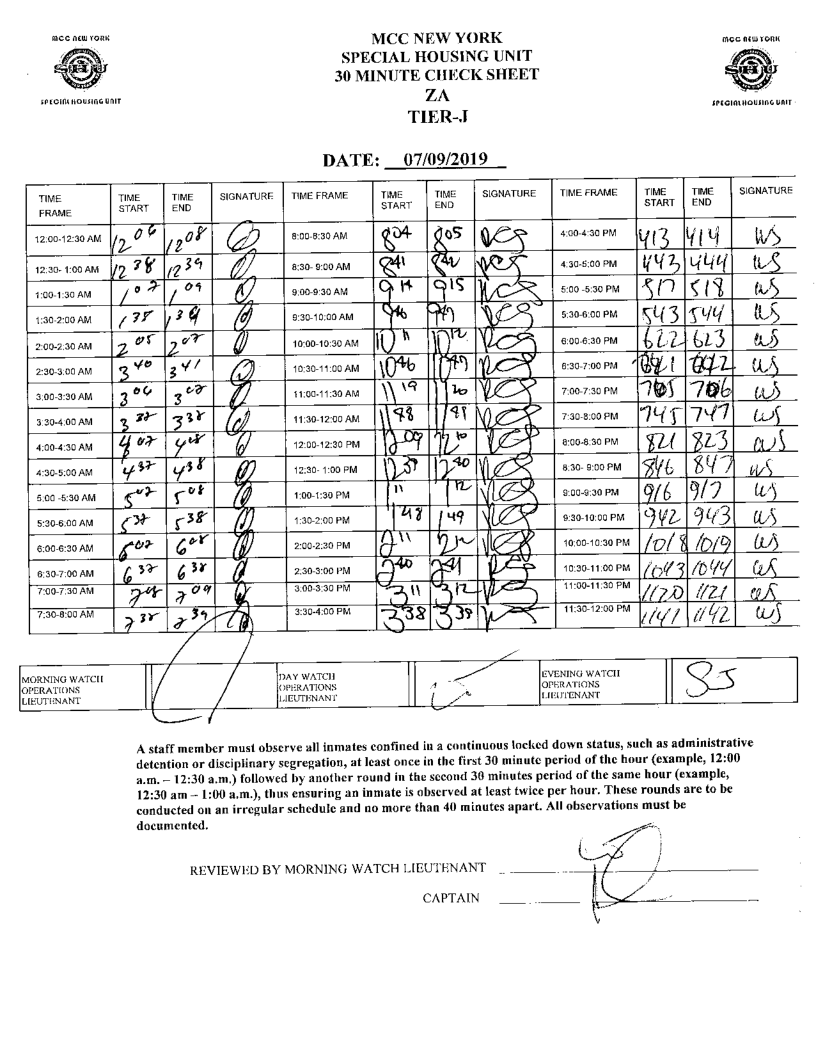 MCC NEW YORK
SHU
SPECIAL HOUSING UNIT
MCC NEW YORK
SPECIAL HOUSING UNIT
30 MINUTE CHECK SHEET
ZA
TIER-J
MCC NEW YORK
SHU
SPECIAL HOUSING UNIT
DATE: 07/09/2019
TIME FRAME TIME START TIME END SIGNATURE TIME FRAME TIME START TIME END SIGNATURE TIME FRAME TIME START TIME END SIGNATURE
12:00-12:30 AM 1206 1208 8:00-8:30 AM 804 805 4:00-4:30 PM 413 414 WS
12:30- 1:00 AM 1238 1239 8:30- 9:00 AM 841 842 4:30-5:00 PM 443 444 WS
1:00-1:30 AM 107 109 9:00-9:30 AM 914 915 5:00 -5:30 PM 517 518 WS
1:30-2:00 AM 138 139 9:30-10:00 AM 946 947 5:30-6:00 PM 543 544 WS
2:00-2:30 AM 205 207 10:00-10:30 AM 1011 1012 6:00-6:30 PM 622 623 WS
2:30-3:00 AM 340 341 10:30-11:00 AM 1046 1047 6:30-7:00 PM 641 642 WS
3:00-3:30 AM 306 307 11:00-11:30 AM 1119 1120 7:00-7:30 PM 705 706 WS
3:30-4:00 AM 337 338 11:30-12:00 AM 1148 1149 7:30-8:00 PM 745 747 WS
4:00-4:30 AM 407 408 12:00-12:30 PM 1209 1210 8:00-8:30 PM 821 823 WS
4:30-5:00 AM 437 438 12:30- 1:00 PM 1239 1240 8:30- 9:00 PM 846 847 WS
5:00 -5:30 AM 507 508 1:00-1:30 PM 111 112 9:00-9:30 PM 916 917 WS
5:30-6:00 AM 537 538 1:30-2:00 PM 148 149 9:30-10:00 PM 942 943 WS
6:00-6:30 AM 607 608 2:00-2:30 PM 211 212 10:00-10:30 PM 1018 1019 WS
6:30-7:00 AM 637 638 2:30-3:00 PM 240 241 10:30-11:00 PM 1043 1044 WS
7:00-7:30 AM 708 709 3:00-3:30 PM 311 312 11:00-11:30 PM 1120 1121 WS
7:30-8:00 AM 738 739 3:30-4:00 PM 338 339 11:30-12:00 PM 1141 1142 WS
MORNING WATCH OPERATIONS LIEUTENANT DAY WATCH OPERATIONS LIEUTENANT EVENING WATCH OPERATIONS LIEUTENANT
A staff member must observe all inmates confined in a continuous locked down status, such as administrative
detention or disciplinary segregation, at least once in the first 30 minute period of the hour (example, 12:00
a.m. – 12:30 a.m.) followed by another round in the second 30 minutes period of the same hour (example,
12:30 am – 1:00 a.m.), thus ensuring an inmate is observed at least twice per hour. These rounds are to be
conducted on an irregular schedule and no more than 40 minutes apart. All observations must be
documented.
REVIEWED BY MORNING WATCH LIEUTENANT
CAPTAIN